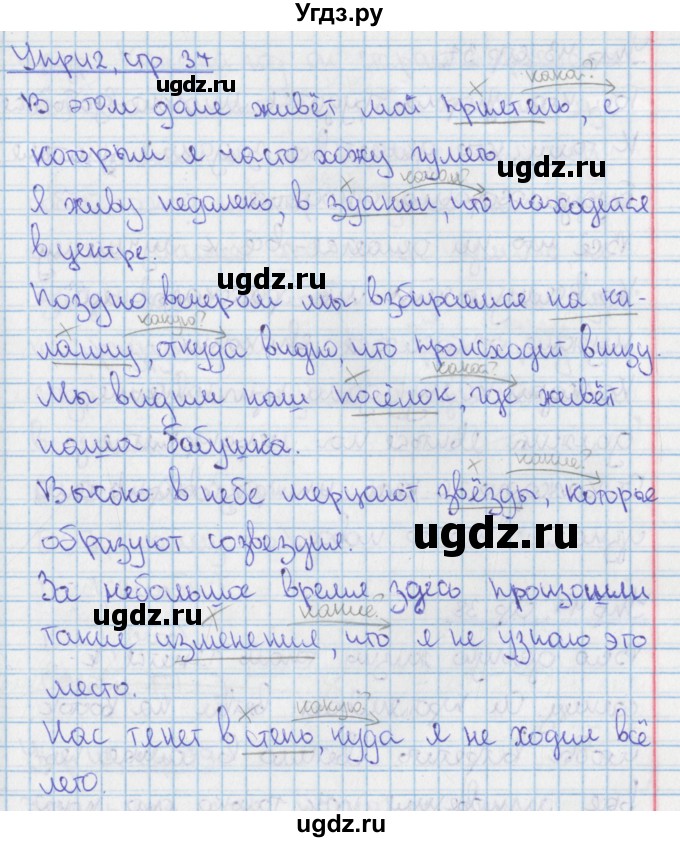 Угдз.ру
Упр 112, стр 37
ugdz.ru
какой?
В этом доме живёт мой приятель, с
которым я часто хожу гулять.
ugdz.ru
каком?
Я живу недалеко, в здании, что находится
в центре.
ugdz.ru
Поздно вечером мы взбираемся на ка-
какую?
ланчу, откуда видно, что происходит внизу.
какой?
Мы видим наш посёлок, где живёт
наша бабушка.
какие?
Высоко в небе мерцают звёзды, которые
ugdz.ru
образуют созвездия.
За небольшое время здесь произошли
ugdz.ru
какие?
такие изменения, что я не узнаю это
место.
какую?
Нас тянет в степь, куда я не ходил всё
лето.
ugdz.ru
ugdz.ru